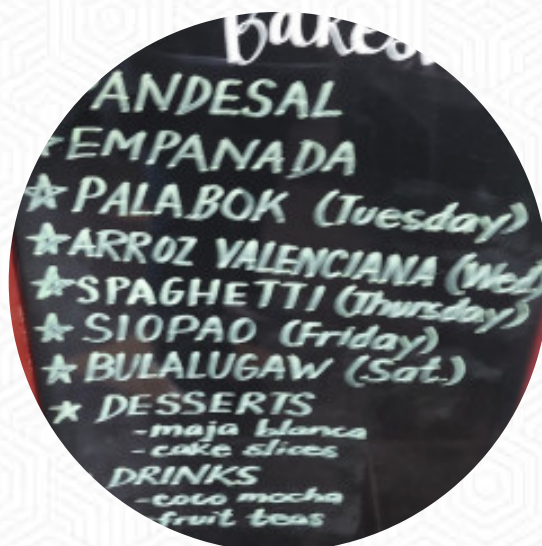 ANDESAL
EMPANADA
PALABOK (Tuesday)
ARROZ VALENCIANA (Wed)
SPAGHETTI (Thursday)
SIOPAO (Friday)
BULALUGAW (Sat.)
DESSERTS
-maja blanca
-cake slices
DRINKS
-coco mocha
fruit teas